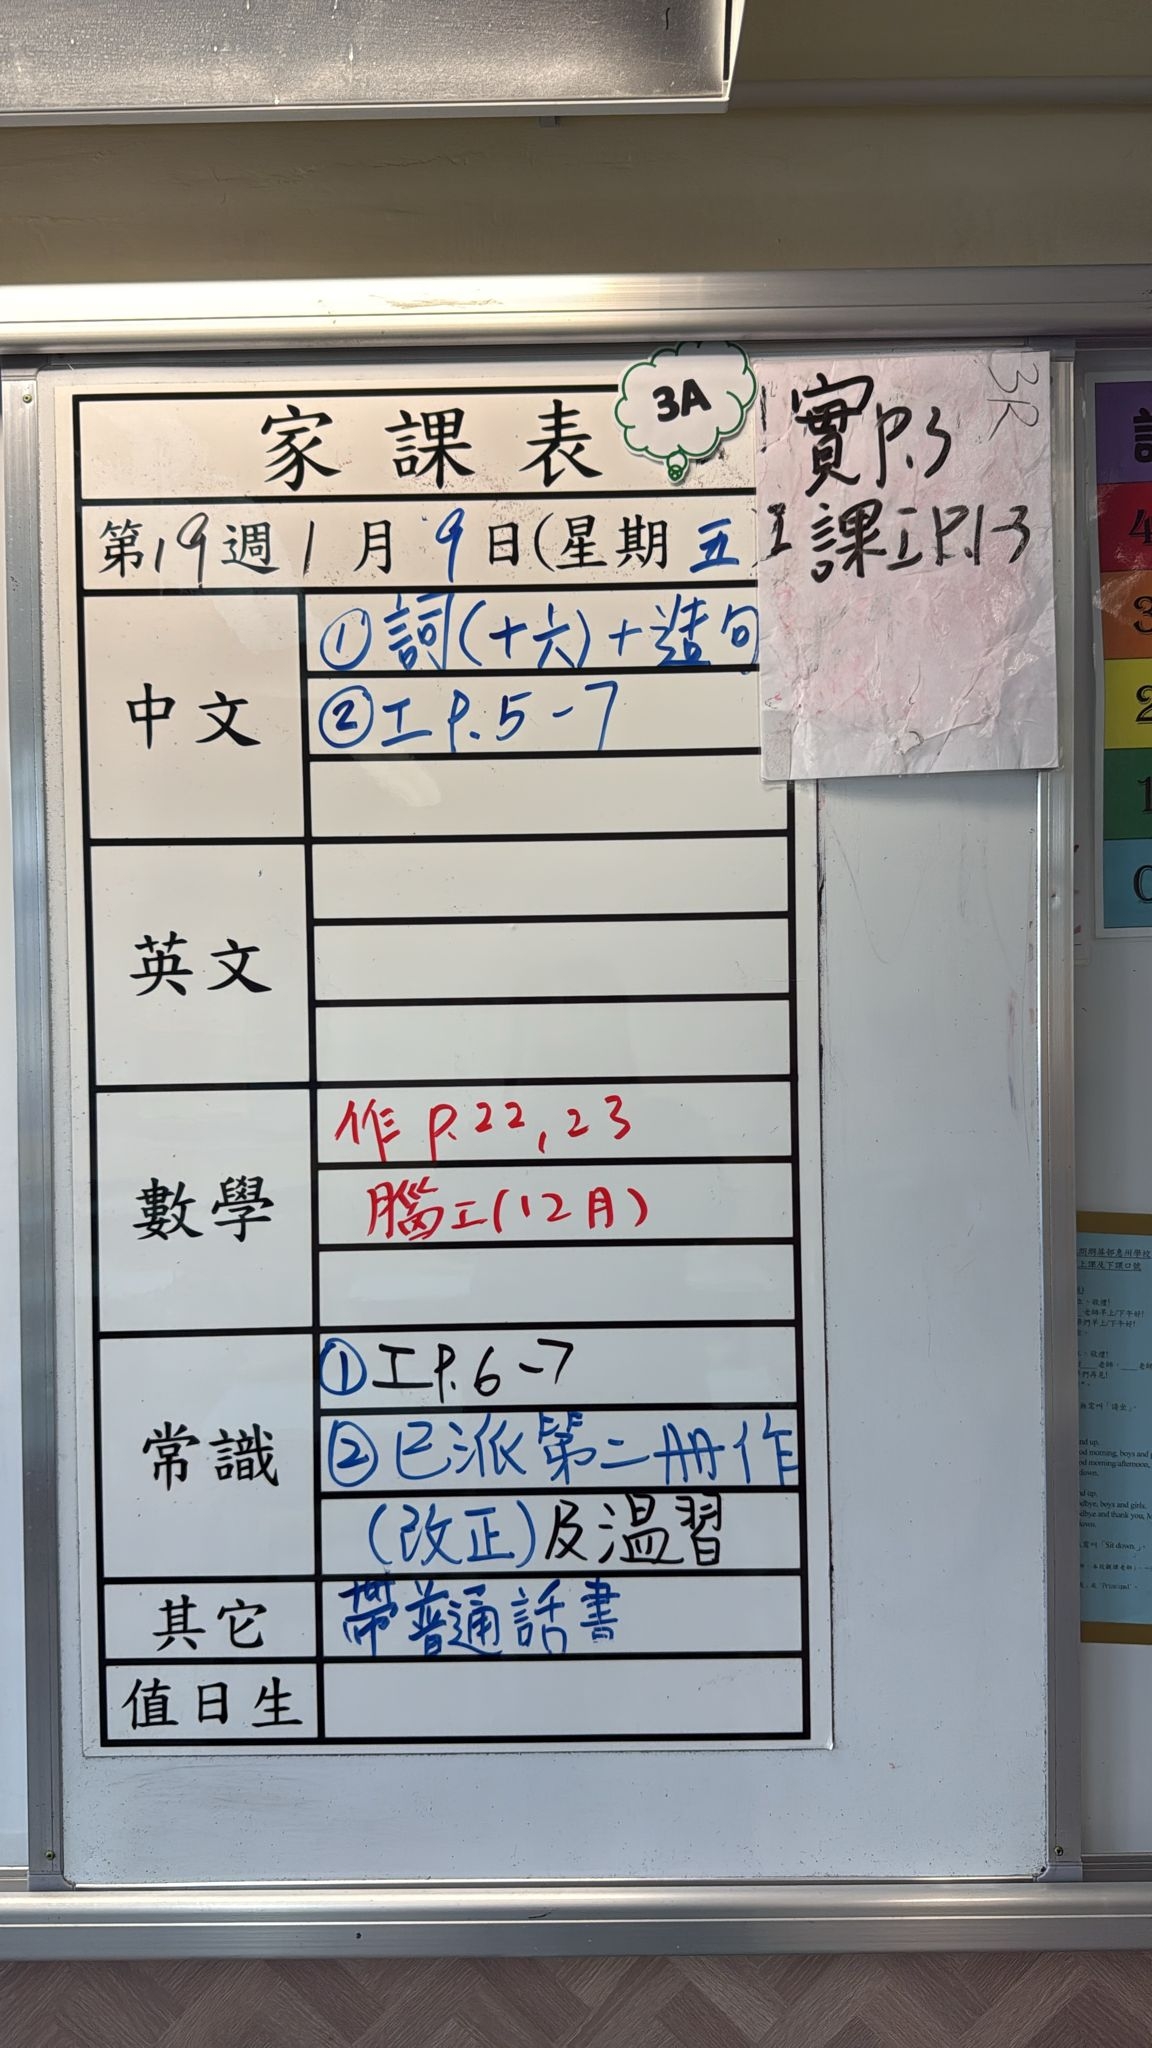 家課表
3A
第19週1月9日(星期五
3R
實P.3
課工P.1-3
中文
①詞(十六)+造句
②工P.5-7
英文
數學
作P.22,23
腦工(12月)
常識
①工P.6-7
②已派第二冊作
(改正)及溫習
其它
帶普通話書
值日生
4
3
2
1
0
上課及下課口號